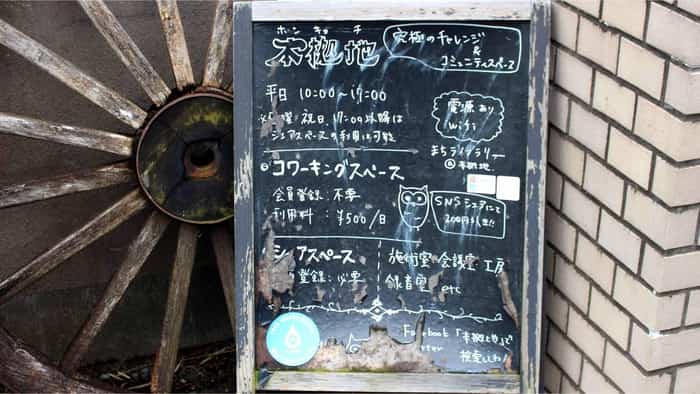 ホンキョチ
本拠地
究極のチャレンジ
&
コミュニティスペース
平日 10:00〜17:00
祝日 17:00以降は
シェアスペースの利用は可能
電源あり
Wifi
まちライブラリー
@本拠地
コワーキングスペース
会員登録:不要
利用料:¥500/日
SNSシェアにて
200円引き!!
シェアスペース
登録:必要
施術室 会議室 工房
録音室 etc
Facebook「本拠地」で
検索してね!